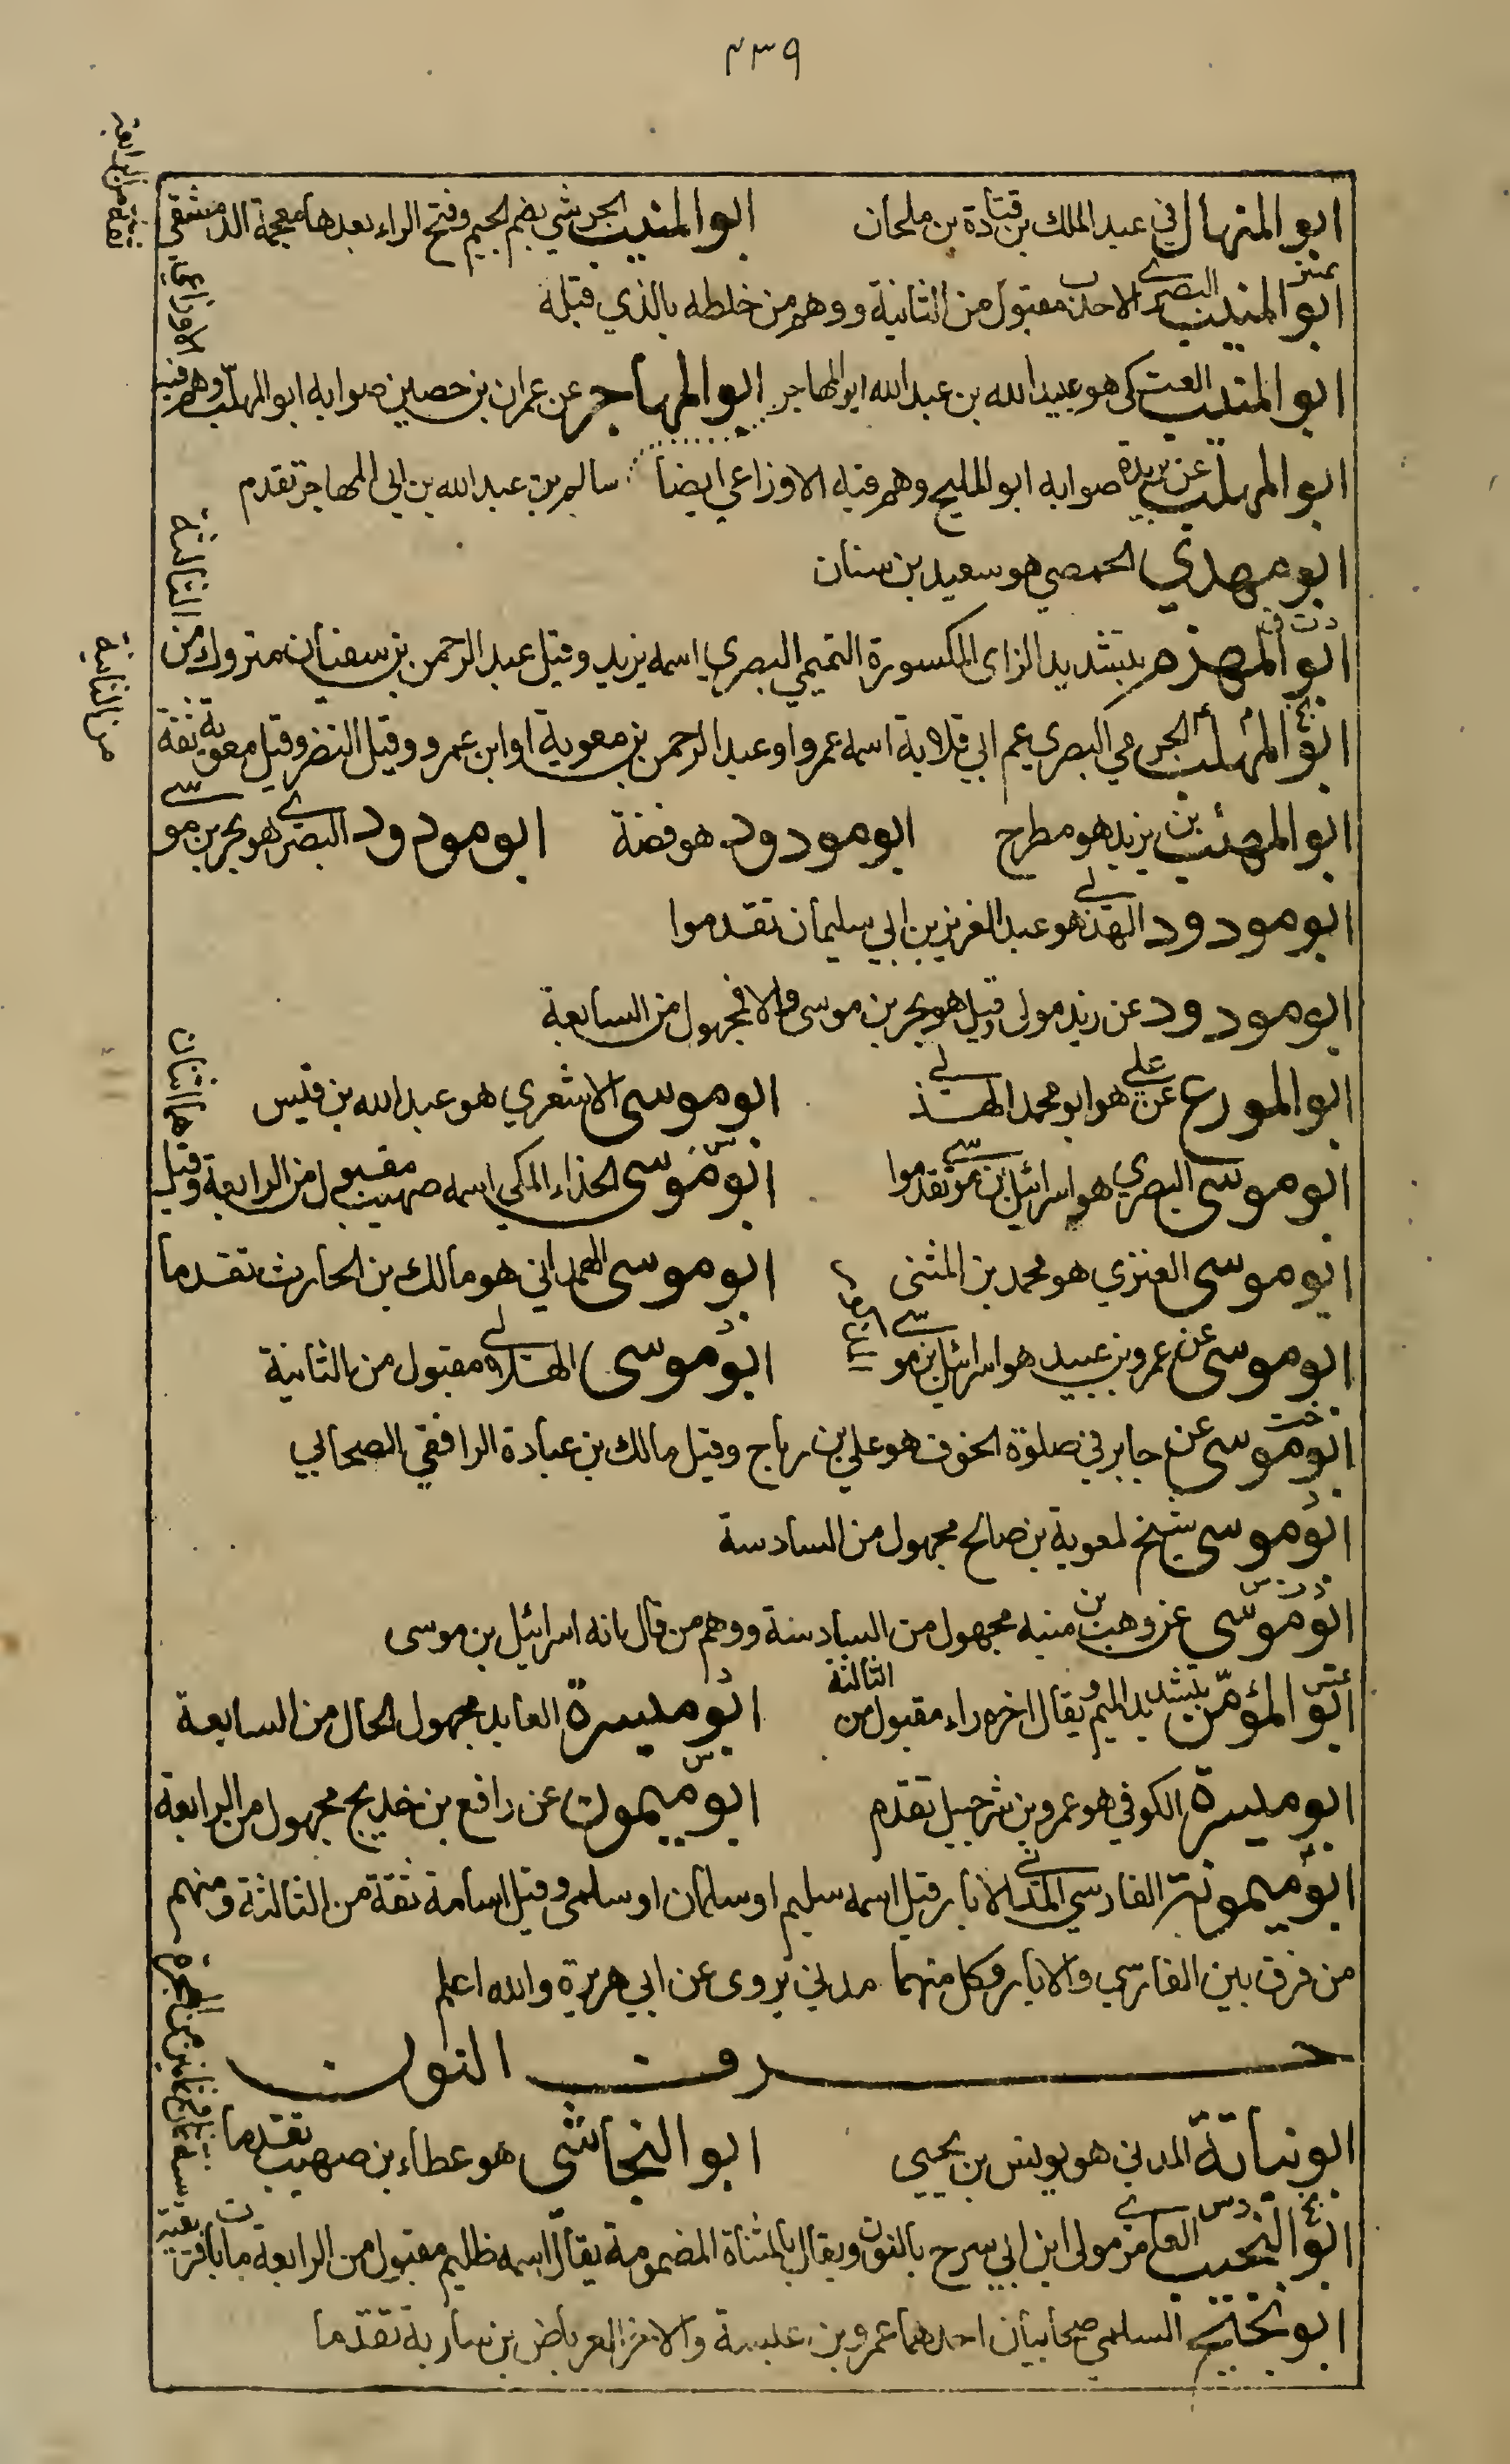 ٤٣٩
ابو المنهال في عبد الملك بن قتادة بن ملحان ابو المنيب الجرشي بضم الجيم وفتح الراء بعدها معجمة الدمشقي
ثقة من الرابعة
ابو المنيب البصري الاحدب مقبول من الثانية ووهم من خلطه بالذي قبله
ابو المنيب العتكي هو عبيد الله بن عبد الله ابو المهاجر ابو المهاجر عن عمران بن حصين صوابه ابو المهلب وهم فيه
الاوزاعي
ابو المهلب عن بريدة صوابه ابو المليح وهم فيه الاوزاعي ايضا سالم بن عبد الله بن ابي المهاجر تقدم
ابو مهدي الحمصي هو سعيد بن سنان
د ت ق
ابو المهزم بتشديد الزاى المكسورة التميمي البصري اسمه يزيد وقيل عبد الرحمن بن سفيان متروك من
الثالثة
ابو المهلب الجرمي البصري عم ابي قلابة اسمه عمرو او عبد الرحمن بن معوية او ابن عمرو وقيل النضر وقيل معوية ثقة
من الثانية
ابو المهلب بن يزيد هو مطرح ابو مودود هو فضة ابو مودود البصري هو بحر بن موسى
ابو مودود الهذلي هو عبد العزيز بن ابي سليمان تقدموا
ابو مودود عن زيد مولى وقيل هو بحر بن موسى والا فمجهول من السابعة
ابو المورع عن علي هو ابو محمد الهذلي ابو موسى الاشعري هو عبد الله بن قيس
ابو موسى البصري هو اسرائيل بن موسى تقدموا ابو موسى الحذاء المكي اسمه صهيب مقبول من الرابعة وقيل
هما اثنان
ابو موسى العنزي هو محمد بن المثنى ابو موسى الهمداني هو مالك بن الحارث تقدما
ابو موسى عن عمرو بن عبيد هو اسرائيل بن موسى ابو موسى الهلالي مقبول من الثانية
خت
ابو موسى عن جابر في صلوة الخوف هو علي بن رباح وقيل مالك بن عبادة الرافقي الصحابي
ابو موسى شيخ لمعوية بن صالح مجهول من السادسة
د ت س
ابو موسى عن وهب بن منبه مجهول من السادسة ووهم من قال بانه اسرائيل بن موسى
ابو المؤمن بتشديد الميم ويقال اخره راء مقبول من الثالثة ابو ميسرة العابد مجهول الحال من السابعة
ابو ميسرة الكوفي هو عمرو بن شرحبيل تقدم ابو ميمون عن رافع بن خديج مجهول من الرابعة
ابو ميمونة الفارسي المدني الابار قيل اسمه سليم او سلمان او سلمى وقيل اسامة ثقة من الثالثة ومنهم
من فرق بين الفارسي والابار وكل منهما مدني يروى عن ابي هريرة والله اعلم
حرف النون
ابو نباتة المدني هو يونس بن يحيى ابو النجاشي هو عطاء بن صهيب تقدما
ابو النجيب العامري مولى ابن ابي سرح بالنون ويقال بالمثناة المضمومة يقال اسمه ظليم مقبول من الرابعة مات بافريقية
سنة ثمان وثمانين من الهجرة
ابو نجيح السلمي صحابيان احدهما عمرو بن عبسة والاخر العرباض بن سارية تقدما